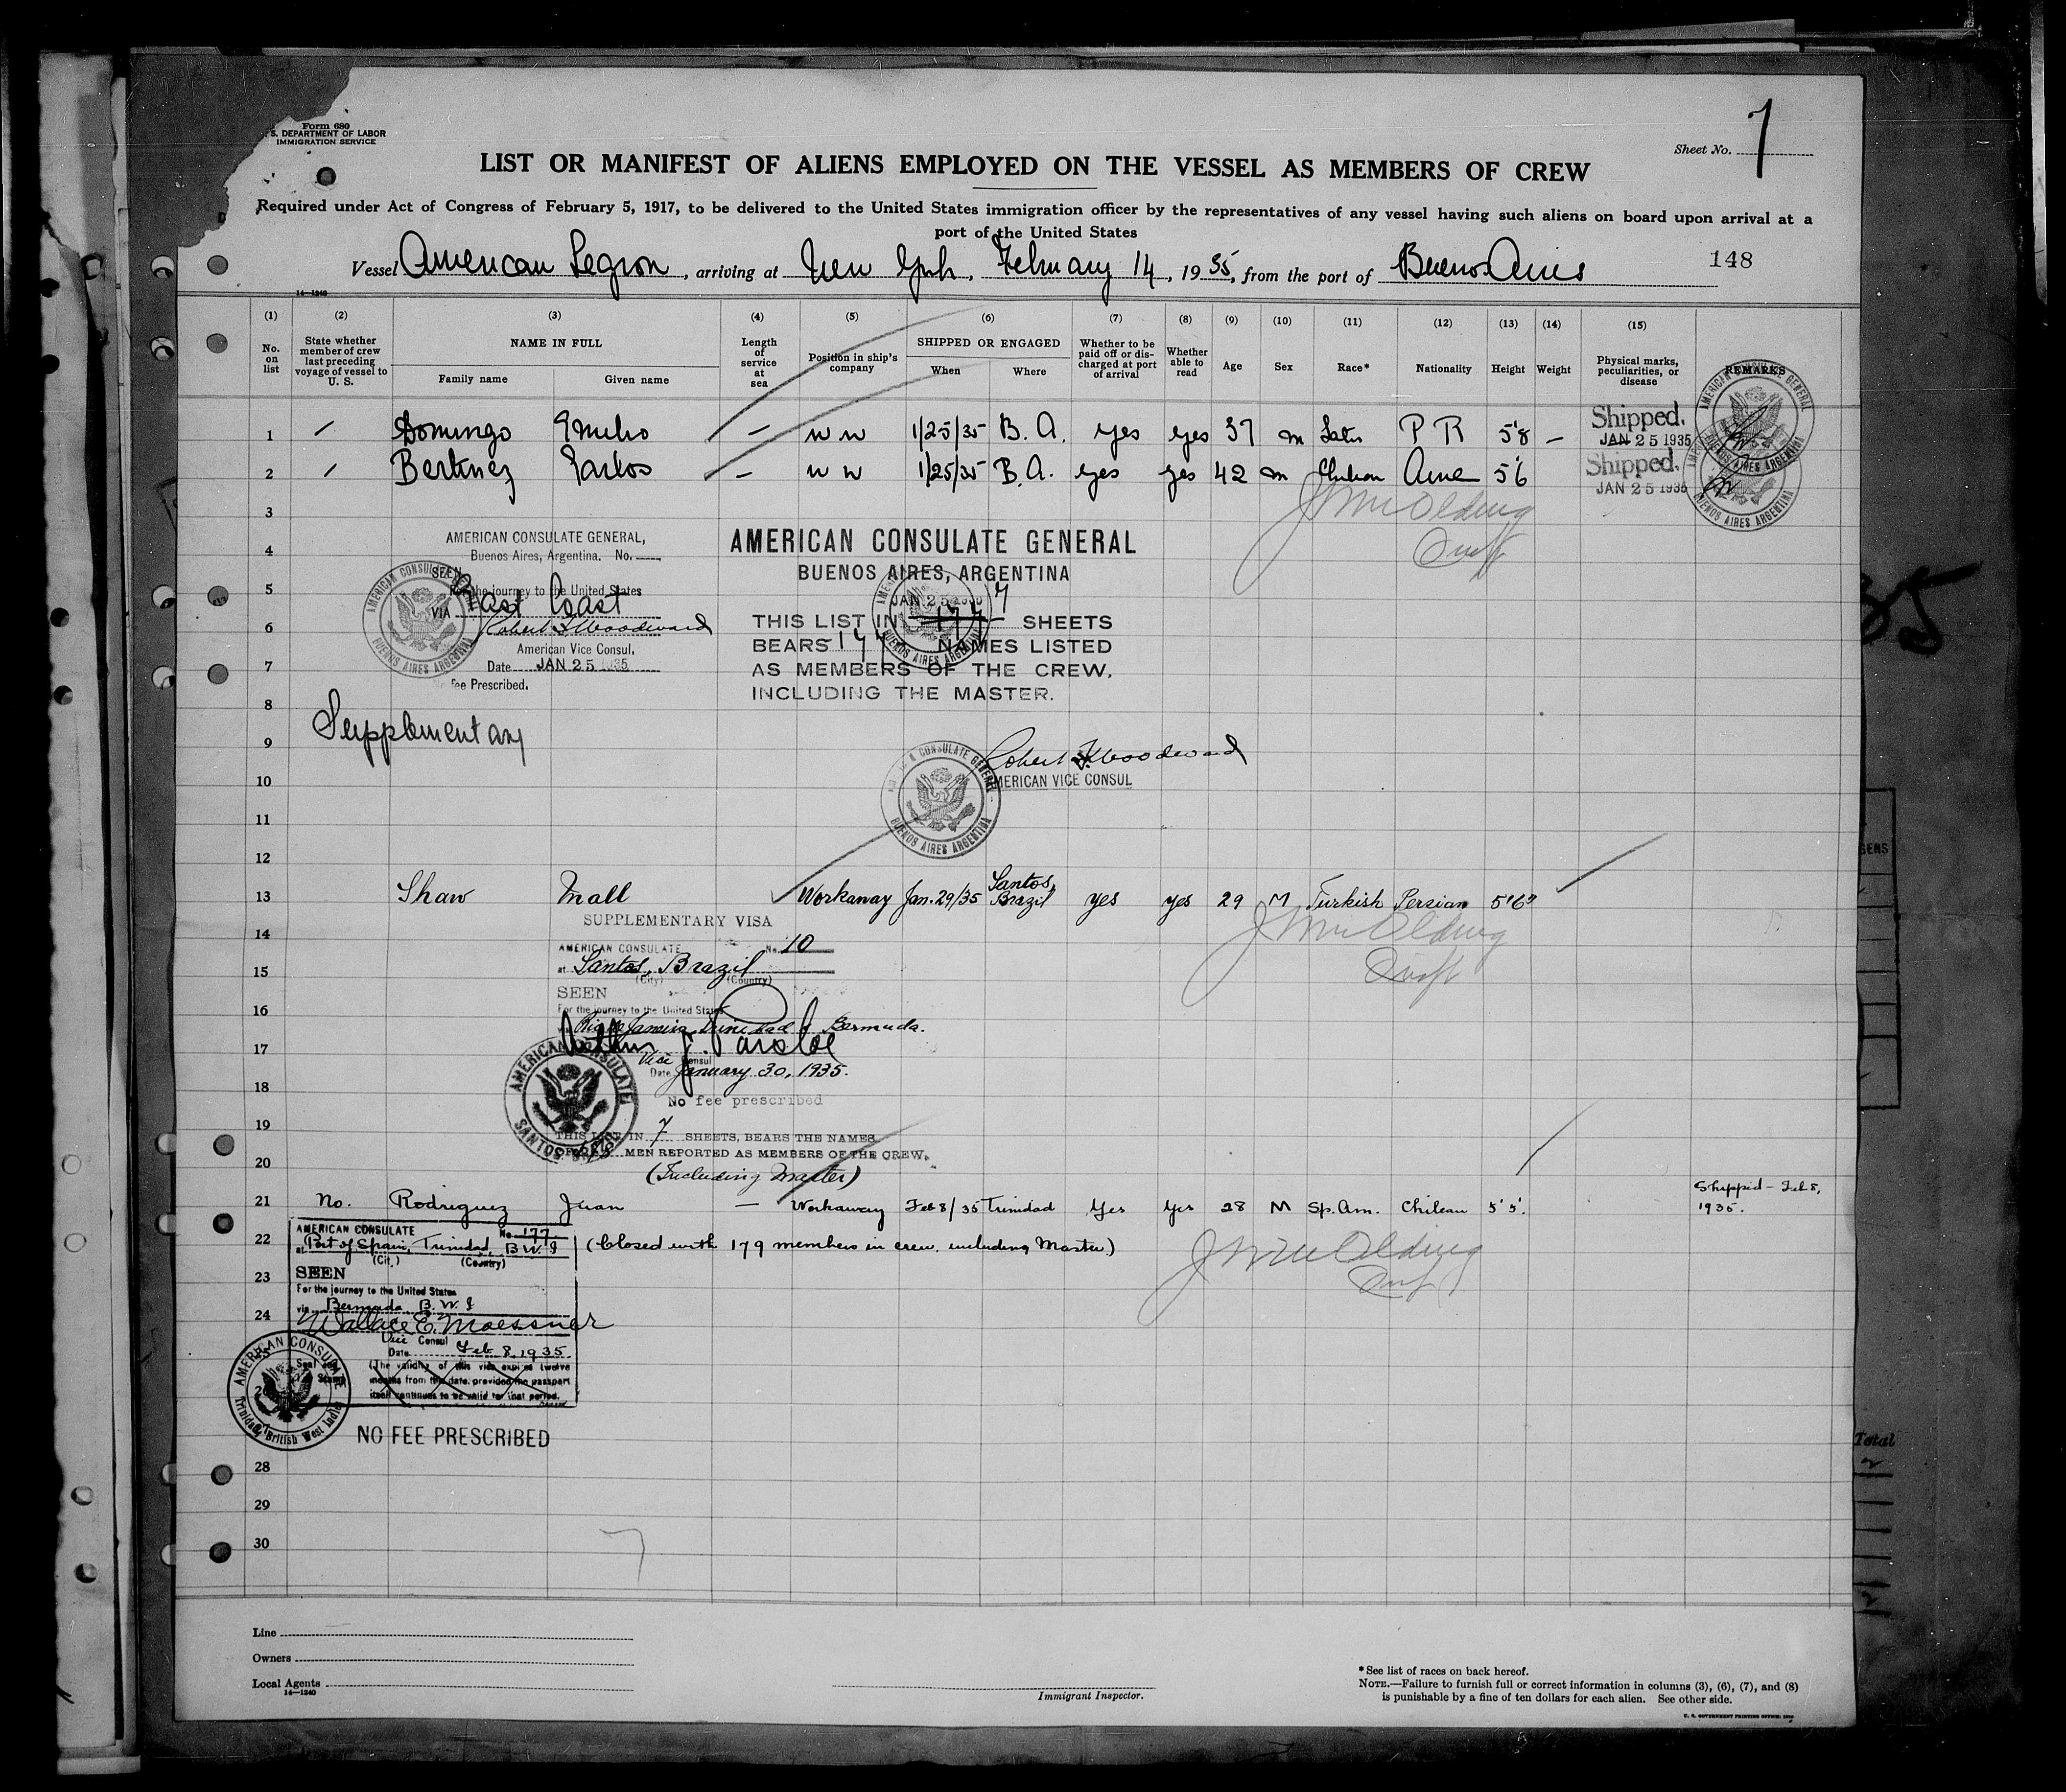 Form 680
S. DEPARTMENT OF LABOR
IMMIGRATION SERVICE
Sheet No. 7
LIST OR MANIFEST OF ALIENS EMPLOYED ON THE VESSEL AS MEMBERS OF CREW
Required under Act of Congress of February 5, 1917, to be delivered to the United States immigration officer by the representatives of any vessel having such aliens on board upon arrival at a
port of the United States
Vessel American Legion, arriving at New York, February 14, 1935, from the port of Buenos Aires 148
14—1240
(1) (2) (3) (4) (5) (6) (7) (8) (9) (10) (11) (12) (13) (14) (15)
No. on list State whether member of crew last preceding voyage of vessel to U. S. NAME IN FULL Family name Given name Length of service at sea Position in ship's company SHIPPED OR ENGAGED When Where Whether to be paid off or discharged at port of arrival Whether able to read Age Sex Race* Nationality Height Weight Physical marks, peculiarities, or disease REMARKS
1 Domingo Emilio — W W 1/25/35 B. A. Yes Yes 37 m Latin P R 5'8 — Shipped. JAN 25 1935
2 Bertinez Carlos — W W 1/25/35 B. A. Yes Yes 42 m Chilean Ame 5'6 Shipped. JAN 25 1935
3
AMERICAN CONSULATE GENERAL,
Buenos Aires, Argentina. No.
SEEN
For the journey to the United States
VIA East Coast
Robert F Woodward
American Vice Consul.
Date JAN 25 1935
No fee Prescribed.
AMERICAN CONSULATE GENERAL
BUENOS AIRES, ARGENTINA
JAN 25 1935
THIS LIST IN 7 SHEETS
BEARS 177 NAMES LISTED
AS MEMBERS OF THE CREW,
INCLUDING THE MASTER.
4
5
6
7
8
Supplementary
9
Robert F Woodward
AMERICAN VICE CONSUL
AMERICAN CONSULATE GENERAL
BUENOS AIRES ARGENTINA
10
11
12
13 Shaw Mall Workaway Jan. 29/35 Santos, Brazil yes yes 29 M Turkish Persian 5'6"
SUPPLEMENTARY VISA
AMERICAN CONSULATE No. 10
at Santos, Brazil
(City) (Country)
SEEN
For the journey to the United States
Rio de Janeiro, Trinidad & Bermuda.
Vice Consul
Date January 30, 1935.
No fee prescribed
AMERICAN CONSULATE
SANTOS
THIS LIST IN 7 SHEETS, BEARS THE NAMES
MEN REPORTED AS MEMBERS OF THE CREW.
(Including Master)
14
15
16
17
18
19
20
21 No. Rodriguez Juan — Workaway Feb 8/35 Trinidad Yes Yes 28 M Sp. Am. Chilean 5'5'. Shipped - Feb 8, 1935.
22 (Closed with 179 members in crew, including Master)
AMERICAN CONSULATE No. 177
at Port of Spain, Trinidad, B W I
(City) (Country)
SEEN
For the journey to the United States
via Bermuda B. W. I
Wallace E. Moessner
Vice Consul
Date Feb. 8, 1935.
(The validity of this visa expires twelve
months from this date, provided the passport
itself continues to be valid for that period.
AMERICAN CONSULATE
Trinidad, British West Indies
NO FEE PRESCRIBED
23
24
28
29
30
7
Line
Owners
Local Agents
14—1240
Immigrant Inspector.
*See list of races on back hereof.
NOTE.—Failure to furnish full or correct information in columns (3), (6), (7), and (8)
is punishable by a fine of ten dollars for each alien. See other side.
Total